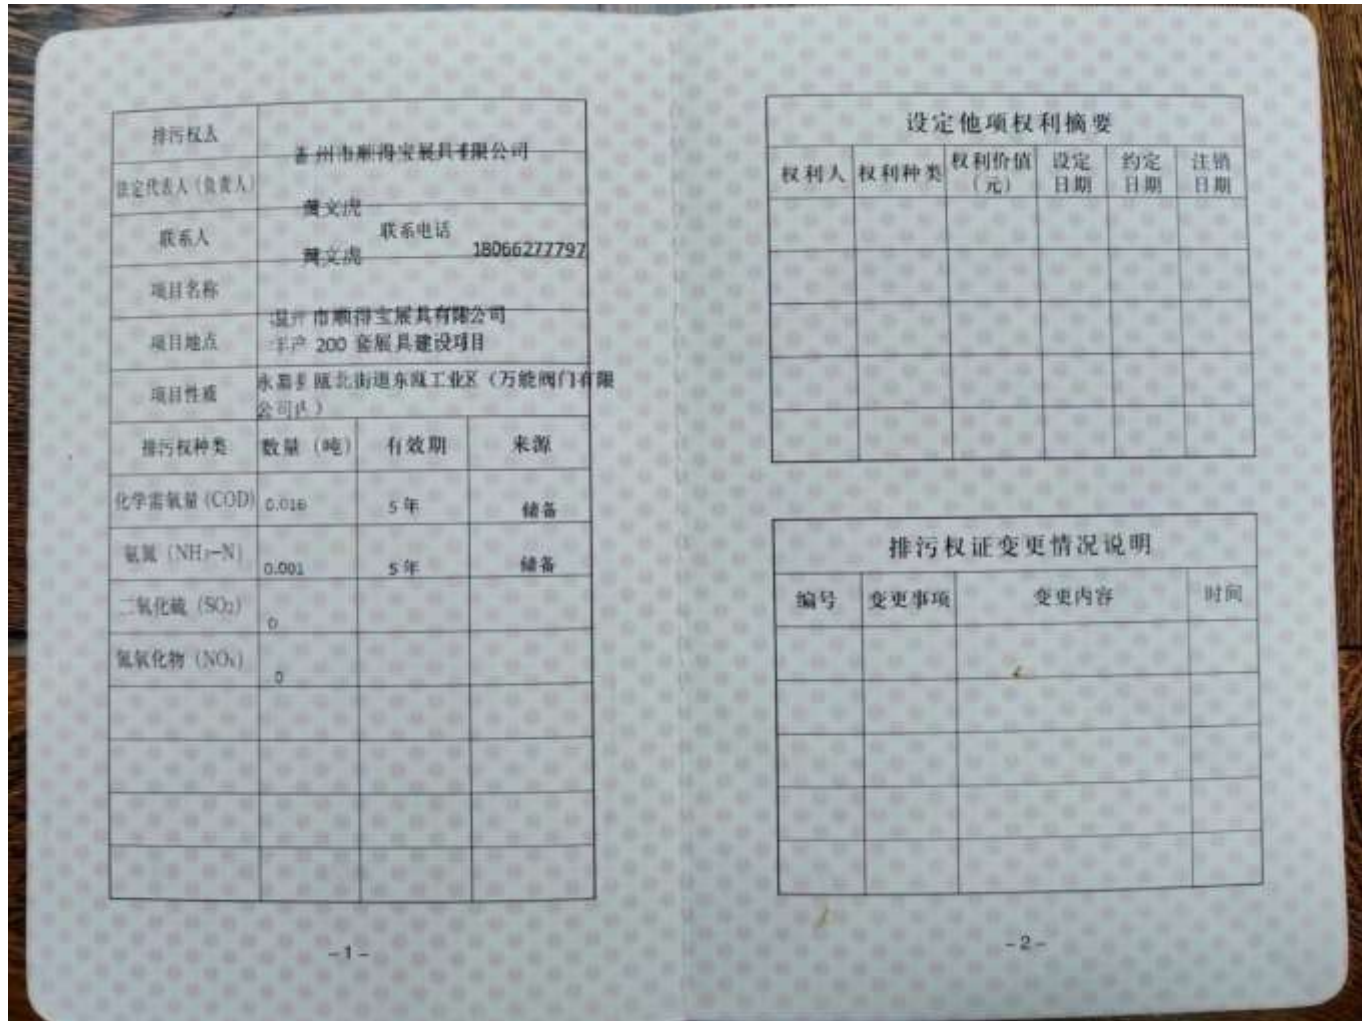 排污权人
温州市顺得宝展具有限公司
法定代表人(负责人)
黄文虎
联系人
联系电话
黄文虎
18066277797
项目名称
温州市顺得宝展具有限公司
项目地点
年产 200 套展具建设项目
项目性质
永嘉县瓯北街道东瓯工业区(万能阀门有限
公司内)
排污权种类 数量(吨) 有效期 来源
化学需氧量(COD) 0.016 5 年 储备
氨氮(NH₃-N) 0.001 5 年 储备
二氧化硫(SO₂) 0
氮氧化物(NOₓ) 0
-1-
设定他项权利摘要
权利人 权利种类 权利价值(元) 设定日期 约定日期 注销日期
排污权证变更情况说明
编号 变更事项 变更内容 时间
-2-